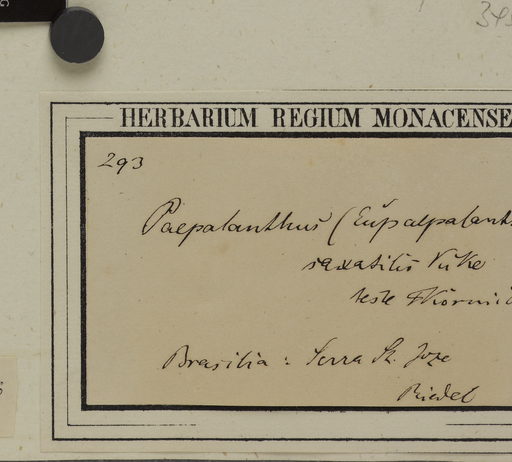 HERBARIUM REGIUM MONACENSE
293
Paepalanthus (Eupaepalant
saxatilis
teste Körnic
Brasilia : Serra St. Joze
Riedel